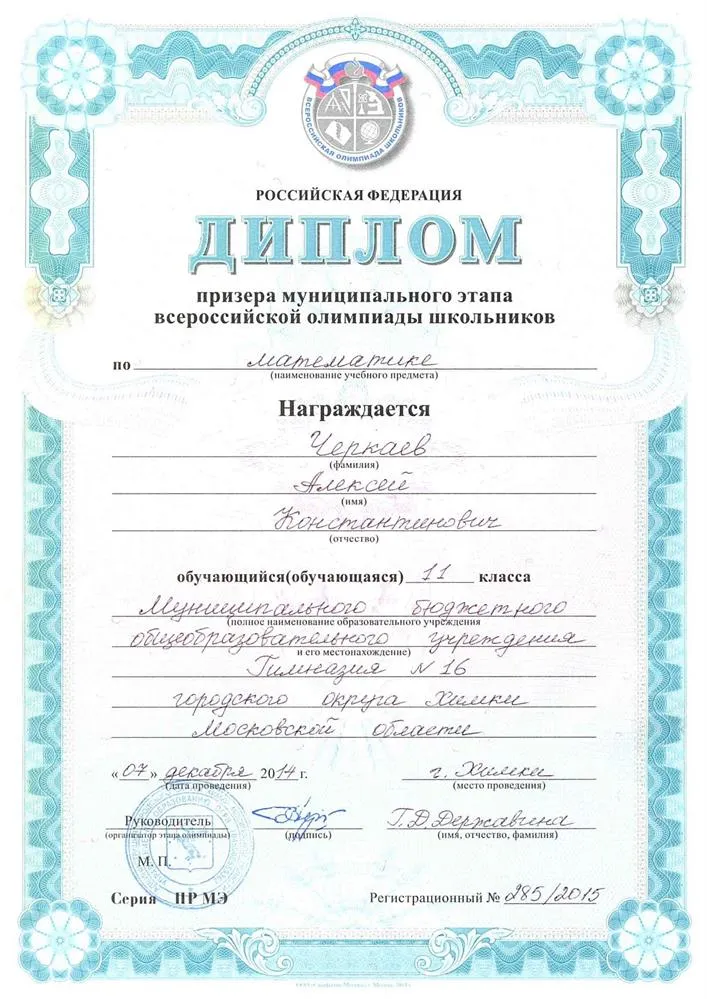 ВСЕРОССИЙСКАЯ ОЛИМПИАДА ШКОЛЬНИКОВ
РОССИЙСКАЯ ФЕДЕРАЦИЯ
ДИПЛОМ
призера муниципального этапа
всероссийской олимпиады школьников
по математике
(наименование учебного предмета)
Награждается
Черкаев
(фамилия)
Алексей
(имя)
Константинович
(отчество)
обучающийся(обучающаяся) 11 класса
Муниципального бюджетного
(полное наименование образовательного учреждения
общеобразовательного учреждения
и его местонахождение)
Гимназия N 16
городского округа Химки
Московской области
«07» декабря 2014 г. г. Химки
(дата проведения) (место проведения)
Руководитель Г.Д.Державина
(организатор этапа олимпиады) (подпись) (имя, отчество, фамилия)
М. П.
Серия ПР МЭ Регистрационный № 285/2015